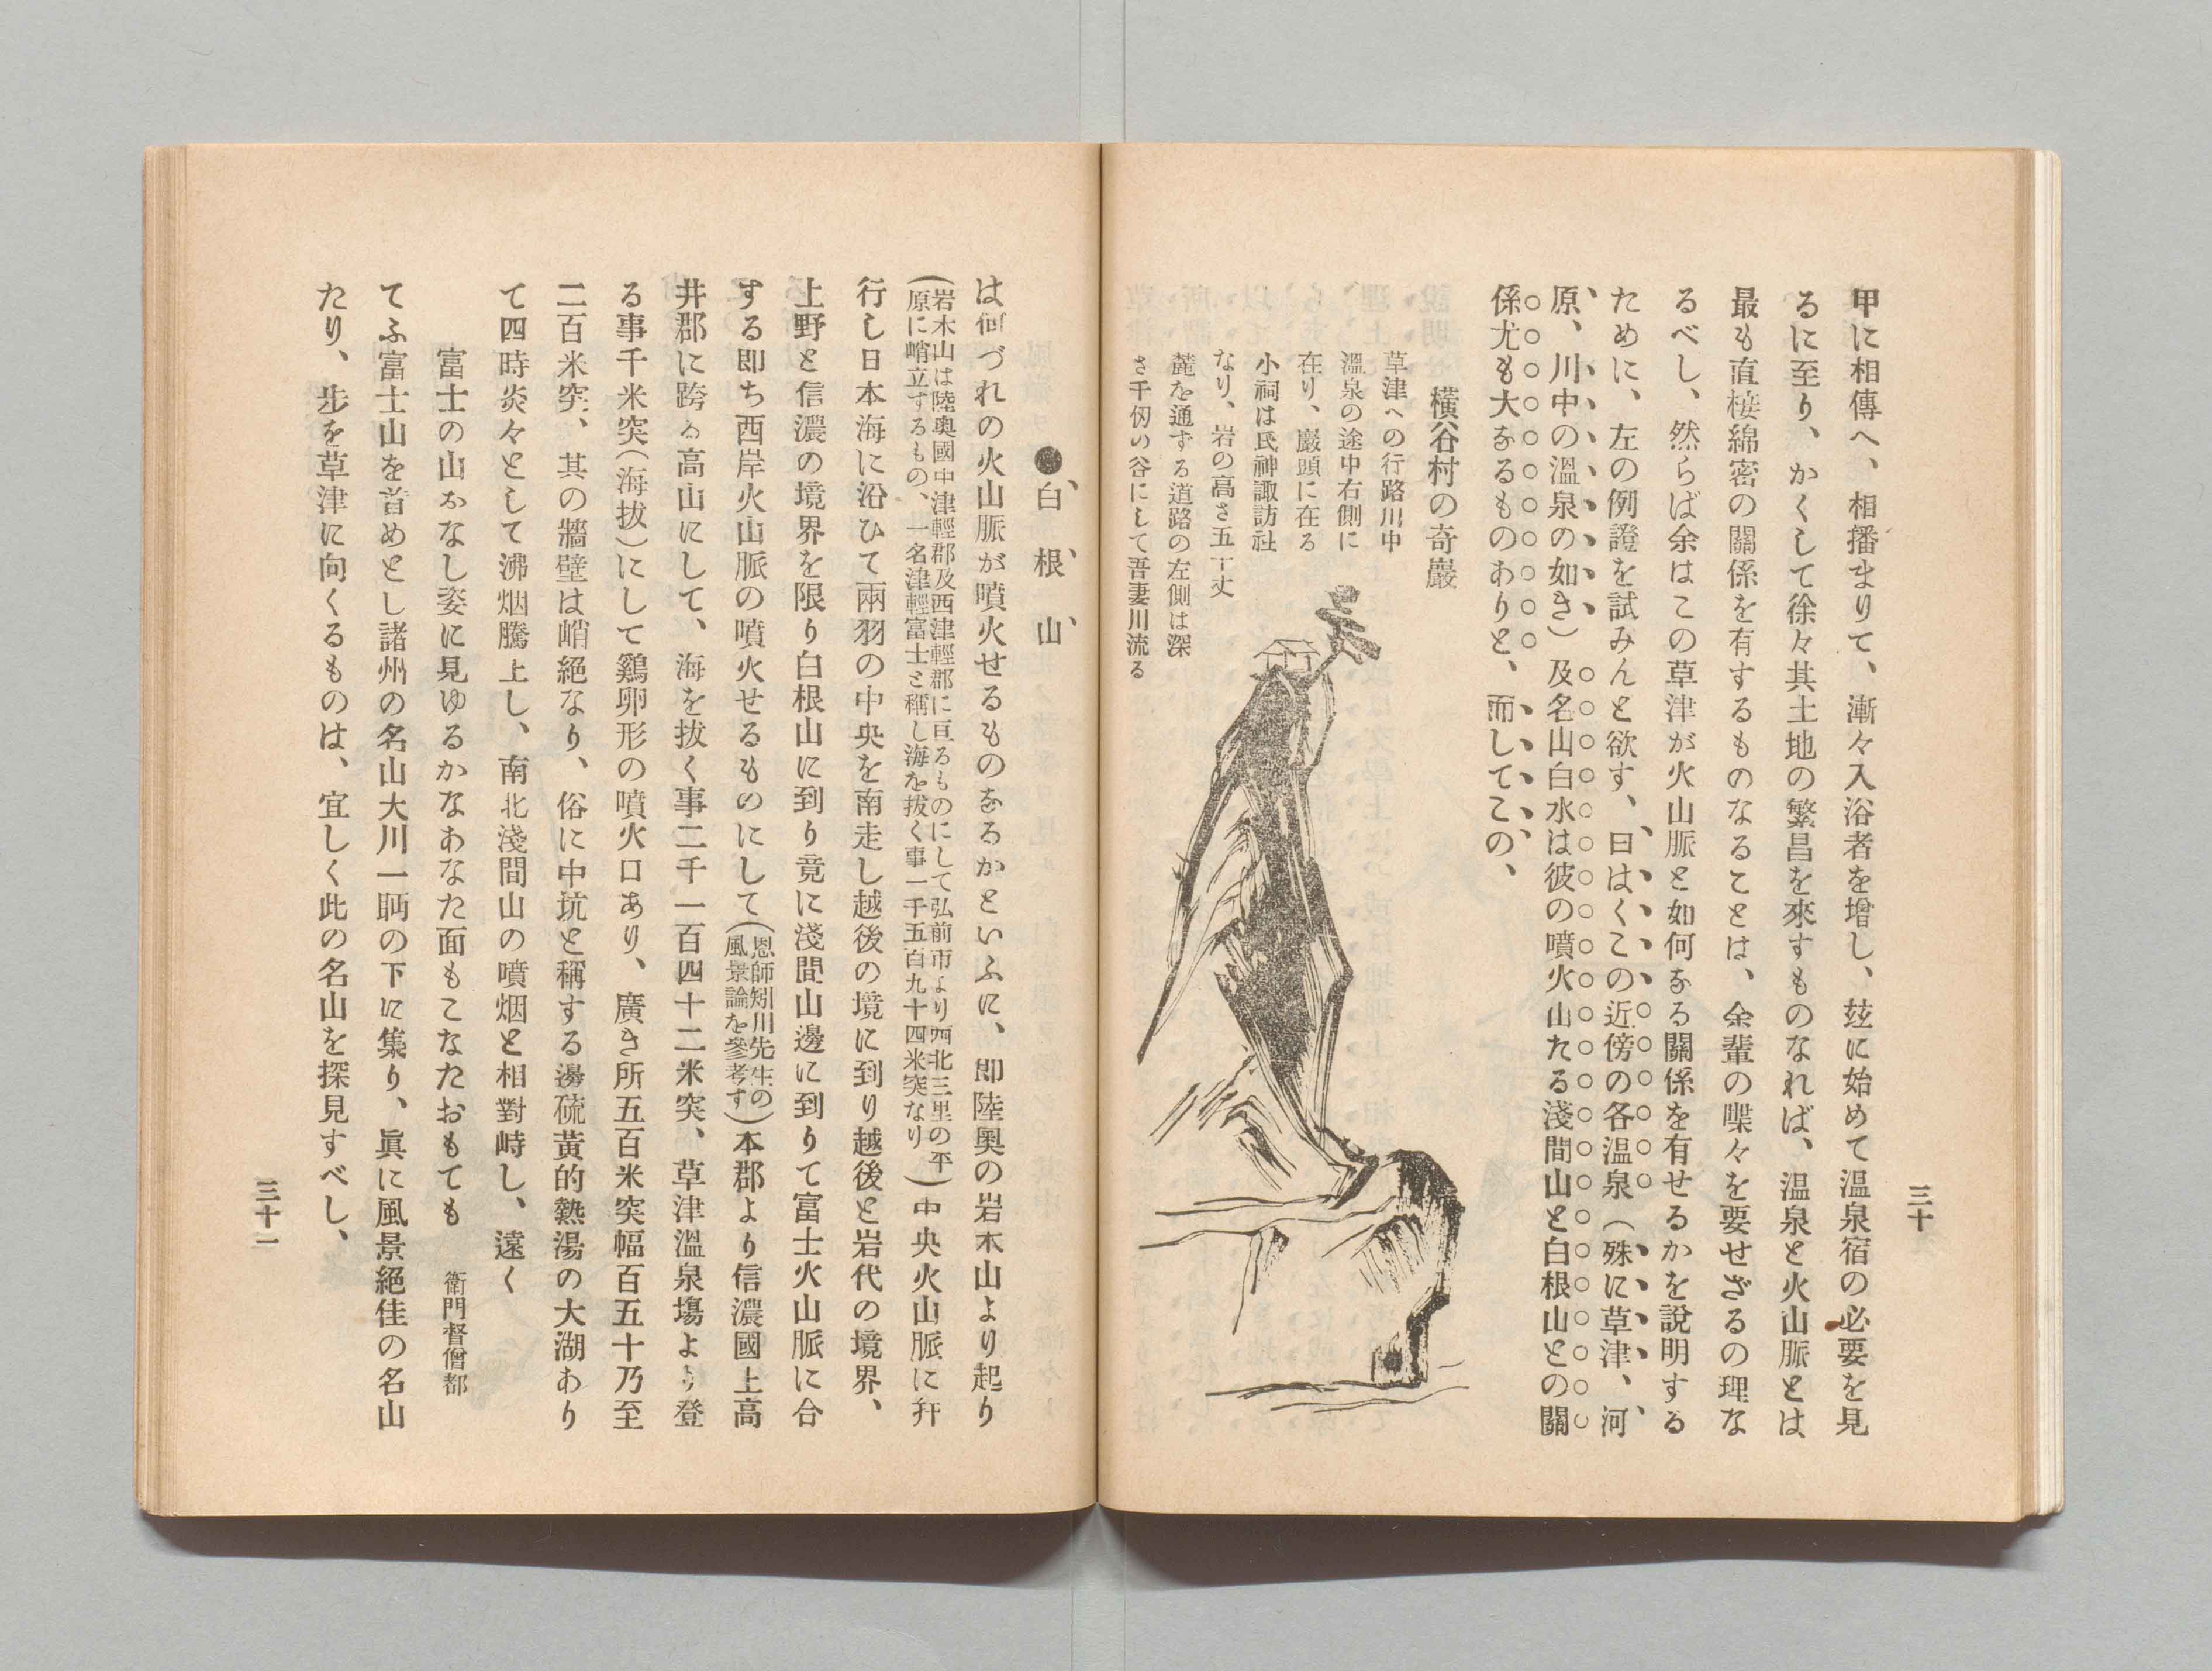 三十
甲に相傳へ、相播まりて、漸々入浴者を增し、玆に始めて温泉宿の必要を見
るに至り、かくして徐々其土地の繁昌を來すものなれば、温泉と火山脈とは
最も直棲綿密の關係を有するものなることは、余輩の喋々を要せざるの理な
るべし、然らば余はこの草津が火山脈と如何なる關係を有せるかを說明する
ために、左の例證を試みんと欲す、曰はくこの近傍の各温泉（殊に草津、河
原、川中の溫泉の如き）及名山白水は彼の噴火山たる淺間山と白根山との關
係尤も大なるものありと、而してこの、
橫谷村の奇巖
草津への行路川中
溫泉の途中右側に
在り、巖頭に在る
小祠は氏神諏訪社
なり、岩の高さ五十丈
麓を通ずる道路の左側は深
さ千仭の谷にして吾妻川流る
●白根山
は何づれの火山脈が噴火せるものなるかといふに、卽陸奧の岩木山より起り
（岩木山は陸奧國中津輕郡及西津輕郡に亘るものにして弘前市より西北三里の平
原に峭立するもの、一名津輕富士と稱し海を拔く事一千五百九十四米突なり）中央火山脈に幷
行し日本海に沿ひて兩羽の中央を南走し越後の境に到り越後と岩代の境界、
上野と信濃の境界を限り白根山に到り竟に淺間山邊に到りて富士火山脈に合
する卽ち西岸火山脈の噴火せるものにして（恩師矧川先生の
風景論を參考す）本郡より信濃國上高
井郡に跨る高山にして、海を拔く事二千一百四十二米突、草津溫泉塲より登
る事千米突（海拔）にして鷄卵形の噴火口あり、廣き所五百米突幅百五十乃至
二百米突、其の牆壁は峭絕なり、俗に中坑と稱する湯硫黃的熱湯の大湖あり
て四時炎々として沸烟騰上し、南北淺間山の噴烟と相對峙し、遠く
富士の山かなし姿に見ゆるかなあなた面もこなたおもても　衛門督僧都
てふ富士山を首めとし諸州の名山大川一眄の下に集り、眞に風景絕佳の名山
たり、步を草津に向くるものは、宜しく此の名山を探見すべし、
三十一